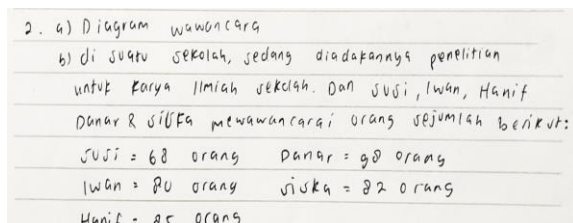 2. a) Diagram wawancara
b) di suatu sekolah, sedang diadakannya penelitian
untuk karya Ilmiah sekolah. Dan susi, Iwan, Hanif
Danar & siska mewawancarai orang sejumlah berikut:
susi = 68 orang Danar = 98 orang
Iwan = 80 orang siska = 82 orang
Hanif = 85 orang